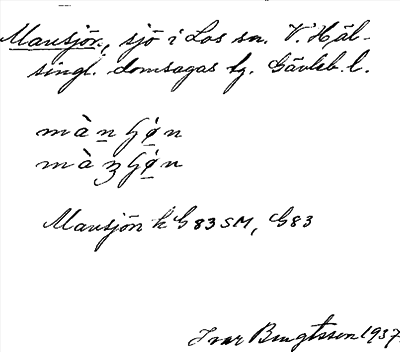 Mansjön, sjö i Los sn. V. Häl-
singl. domsagas tg. Gävleb. l.
Mansjön k G 83 SM, G 83
Ivar Bengtsson 1937